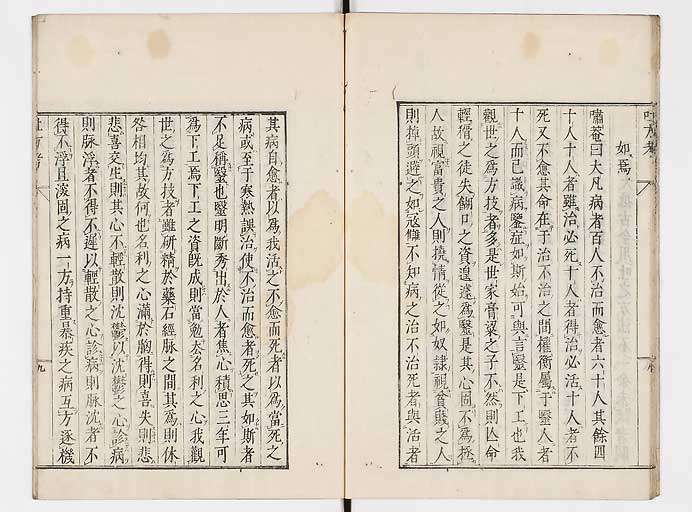 如焉
嘯菴曰大凡病者百人不治而愈者六十人其餘四
十人十人者雖治必死十人者得治必活十人者不
死又不愈其命在于治不治之間權衡屬于醫人者
十人而已識病鑒症如斯始可與言醫是下工也我
觀世之為方技者多是世家膏粱之子不然則亡命
輕猾之徒失餬口之資遑遽為醫是其心固不為拯
人故視富貴之人則撓情從之如奴隷視貧賤之人
則掉頭避之如寇讎不知病之治不治死者與治者
其病自愈者以為我活之不愈而死者以為當死之
病或至于寒熱誤治使不治而愈者死之其如斯者
不足稱醫也醫明斷秀出於人者焦心積思三年可
為下工為下工之資既成則當勉去名利之心我觀
世之為方技者雖研精於藥石經脉之間其為則休
咎相均其故何也名利之心滿於胸得則喜失則悲
悲喜交生則其心不輕散則沈鬱以沈鬱之心診病
則脉浮者不得不遲以輕散之心診病則脉沈者不
得不浮且沒固之病一方持重暴疾之病互方逐機
九